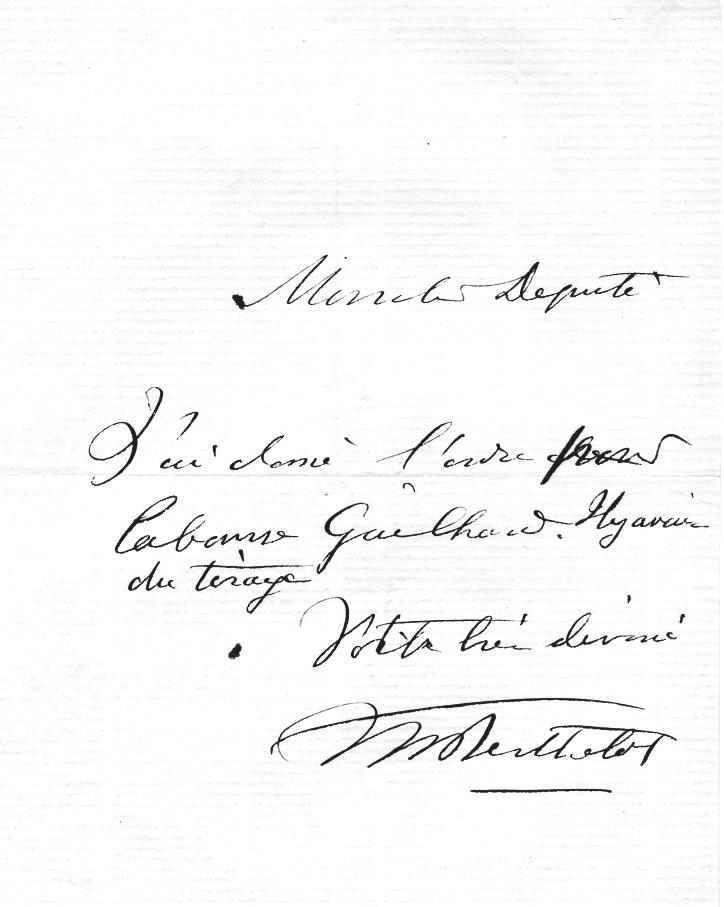 Mon cher Deputé
J'ai donné l'ordre pour
la bourse Guilhard. Il y avait
du tirage
Votre très dévoué
M Berthelot